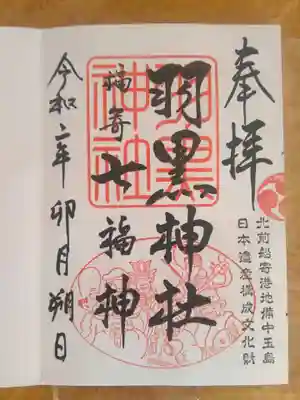 奉拝
北前船寄港地備中玉島
日本遺産構成文化財
羽黒神社
羽黒
神社
福寄せ
七福神
令和二年卯月朔日